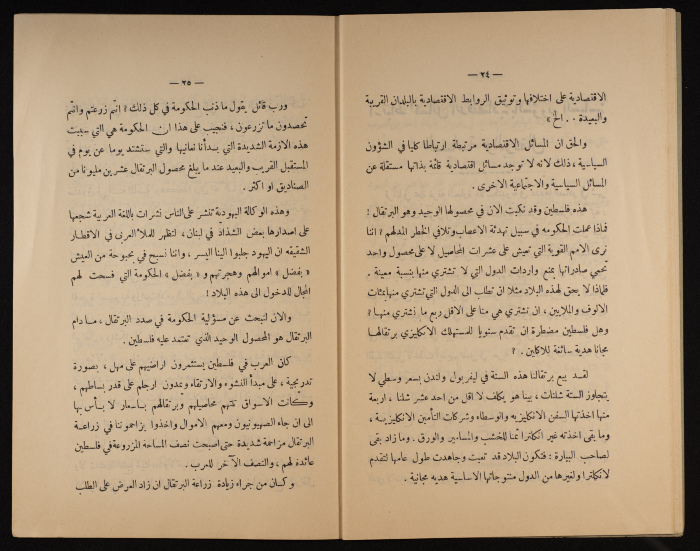 — ٢٤ —
الاقتصادية على اختلافها وتوثيق الروابط الاقتصادية بالبلدان القريبة
والبعيدة . . الخ »
والحق ان المسائل الاقتصادية مرتبطة ارتباطا كليا في الشؤون
السياسية ، ذلك لانه لا توجد مسائل اقتصادية قائمة بذاتها مستقلة عن
المسائل السياسية والاجتماعية الاخرى .
هذه فلسطين وقد نكبت الان في محصولها الوحيد وهو البرتقال !
فماذا عملت الحكومه في سبيل تهدئة الاعصاب وتلافي الخطر المدلهم ؟ اننا
نرى الامم القوية التي تعيش على عشرات المحاصيل لا على محصول واحد
تحمي صادراتها بمنع واردات الدول التي لا تشتري منها بنسبة معينة .
فلماذا لا يحق لهذه البلاد مثلا ان تطلب الى الدول التي تشتري منها بمئات
الالوف والملايين ، ان تشتري هي منا على الاقل ربع ما نشتري منها ؟
وهل فلسطين مضطرة ان تقدم سنويا للمستهلك الانكليزي برتقالها
مجانا هدية سائغة للاكلين . ؟
لقد بيع برتقالنا هذه السنة في ليفربول ولندن بسعر وسطي لا
يتجاوز الستة شلنات ، بينا هو يكلف لا اقل من احد عشر شلنا ، اربعة
منها اخذتها السفن الانكليزيه والوسطاء وشركات التأمين الانكليزيــة ،
وما بقى اخذته غير انكلترا ثمنا للخشب والمسامير والورق . وما زاد بقى
لصاحب البيارة : فتكون البلاد قد تعبت وجاهدت طول عامها لتقدم
لانكلترا ولغيرها من الدول منتوجاتها الاساسية هديه مجانية .
— ٢٥ —
ورب قائل يقول ما ذنب الحكومة في كل ذلك ؟ انتم زرعتم وانتم
تحصدون ما تزرعون ، فنجيب على هذا ان الحكومة هي التي سببت
هذه الازمة الشديدة التي بــدأنا نعانيها والتي ستشتد يوما عن يوم في
المستقبل القريب والبعيد عند ما يبلغ محصول البرتقال عشرين مليونا من
الصناديق او اكثر .
وهذه الوكالة اليهودية تنشر على الناس نشرات باللغة العربية شجعها
على اصدارها بعض الشذاذ في لبنان ، لتظهر للملأ العربى في الاقطار
الشقيقه ان اليهود جلبوا الينا اليسر ، واننا نسبح في بحبوحة من العيش
« بفضل » اموالهم وهجرتهم و « بفضل » الحكومة التي فسحت لهم
المجال للدخول الى هذه البلاد !
والان لنبحث عن مسؤلية الحكومة في صدد البرتقال ، مــا دام
البرتقال هو المحصول الوحيد الذي تعتمد عليه فلسطين .
كان العرب في فلسطين يستثمرون اراضيهم على مهل ، بصورة
تدريجية ، على مبدأ النشوء والارتقاء ويمدون ارجلم على قدر بساطهم ،
وكانت الاسواق تلتهم محاصيلهم وبرتقالهم باسعار لا بــأس بهــا
الى ان جاء الصهيونيون ومعهم الاموال واخذوا يزاحموننا في زراعــة
البرتقال مزاحمة شديدة حتى اصبحت نصف المساحة المزروعة في فلسطين
عائدة لهم ، والنصف الآخر للعرب .
وكــان من جراء زيادة زراعة البرتقال ان زاد العرض على الطلب